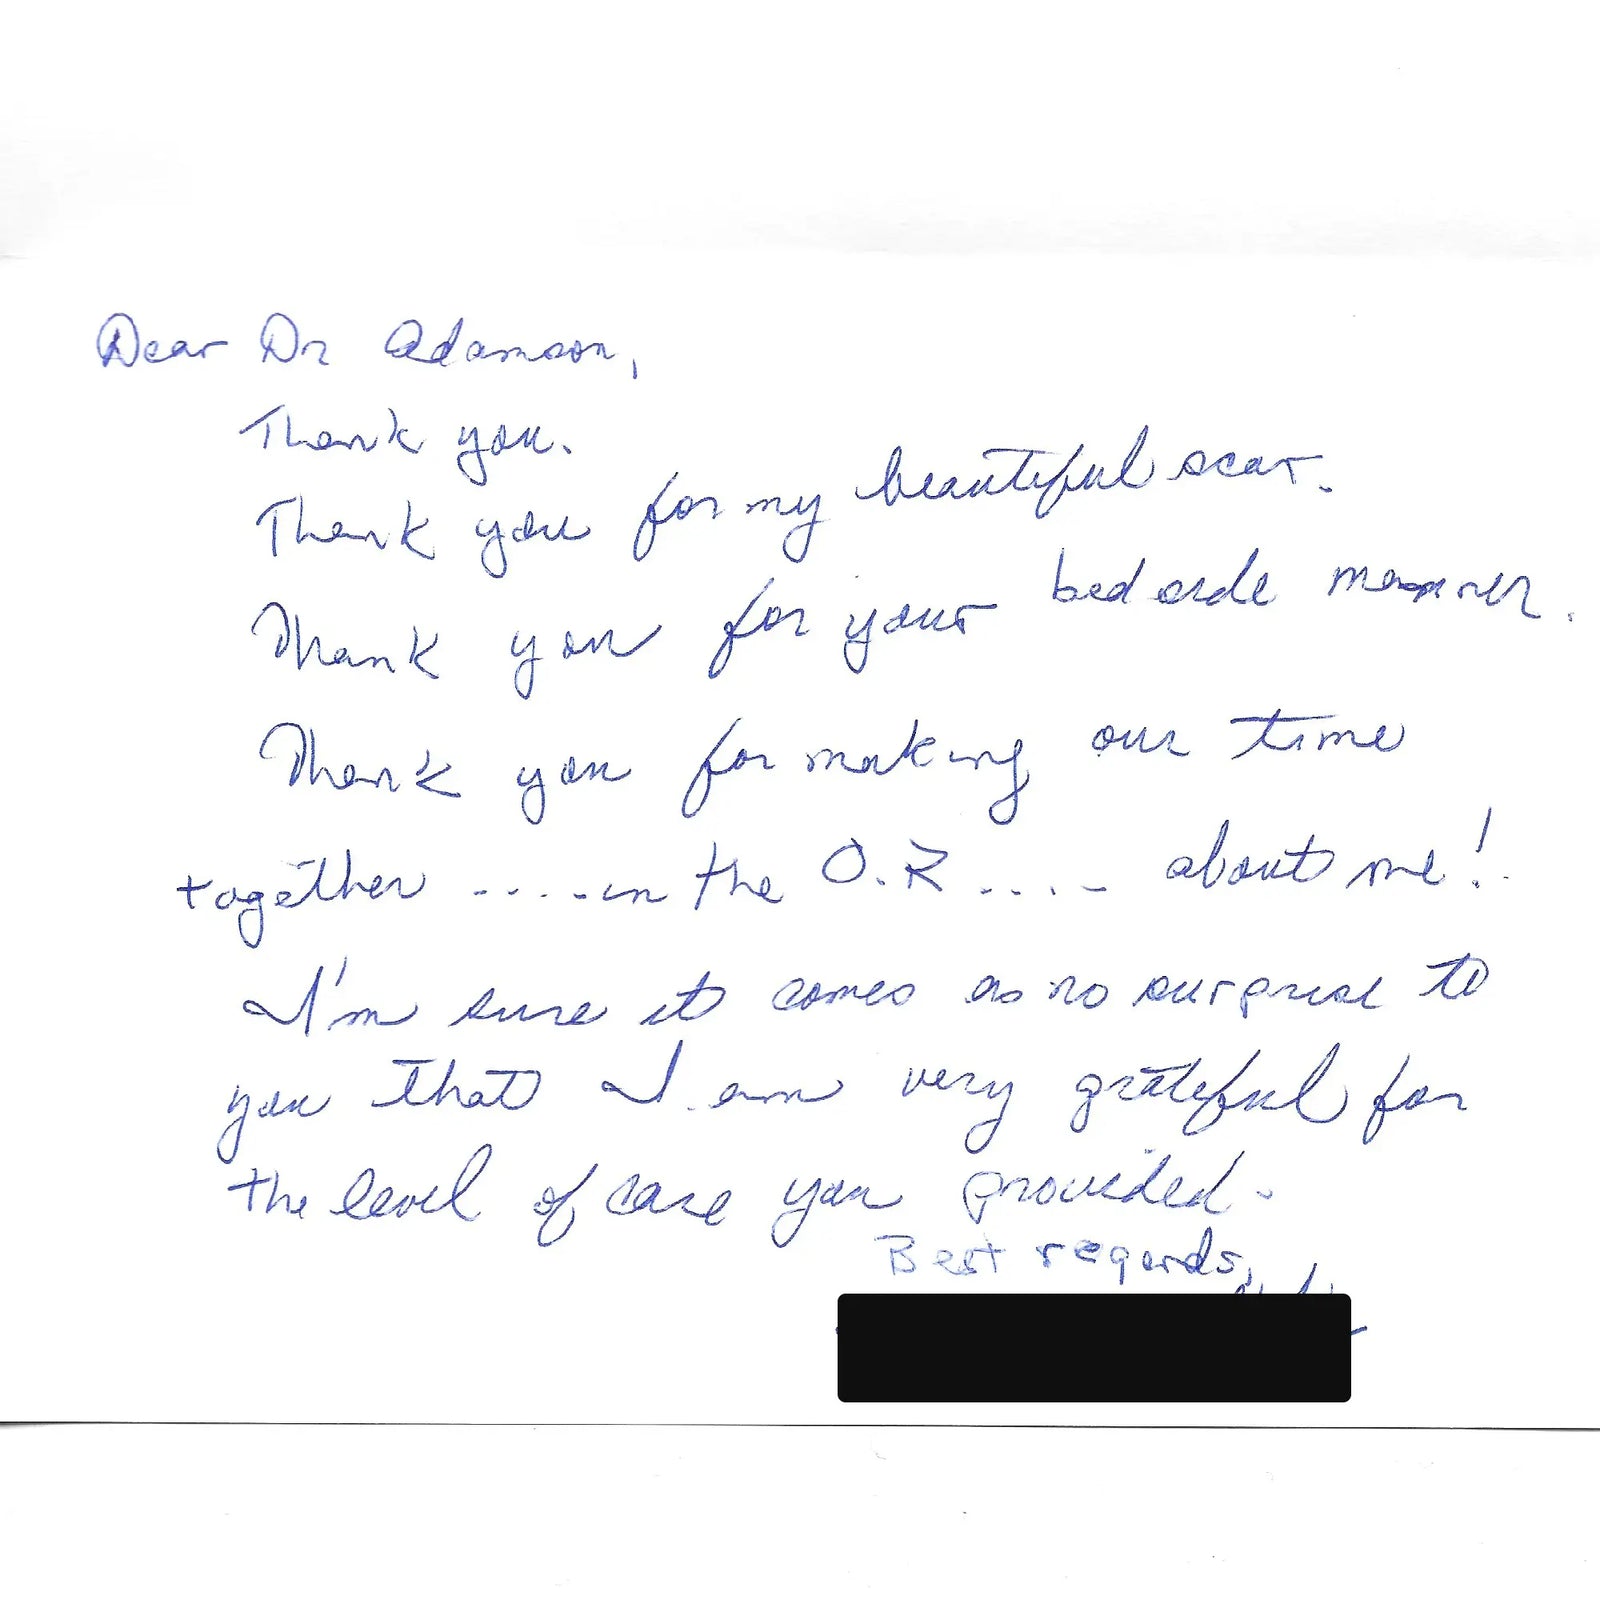 Dear Dr Adamson,
Thank you.
Thank you for my beautiful scar.
Thank you for your bedside manner.
Thank you for making our time
together ..... in the O.R ..... about me!
I'm sure it comes as no surprise to
you that I am very grateful for
the level of care you provided.
Best regards,